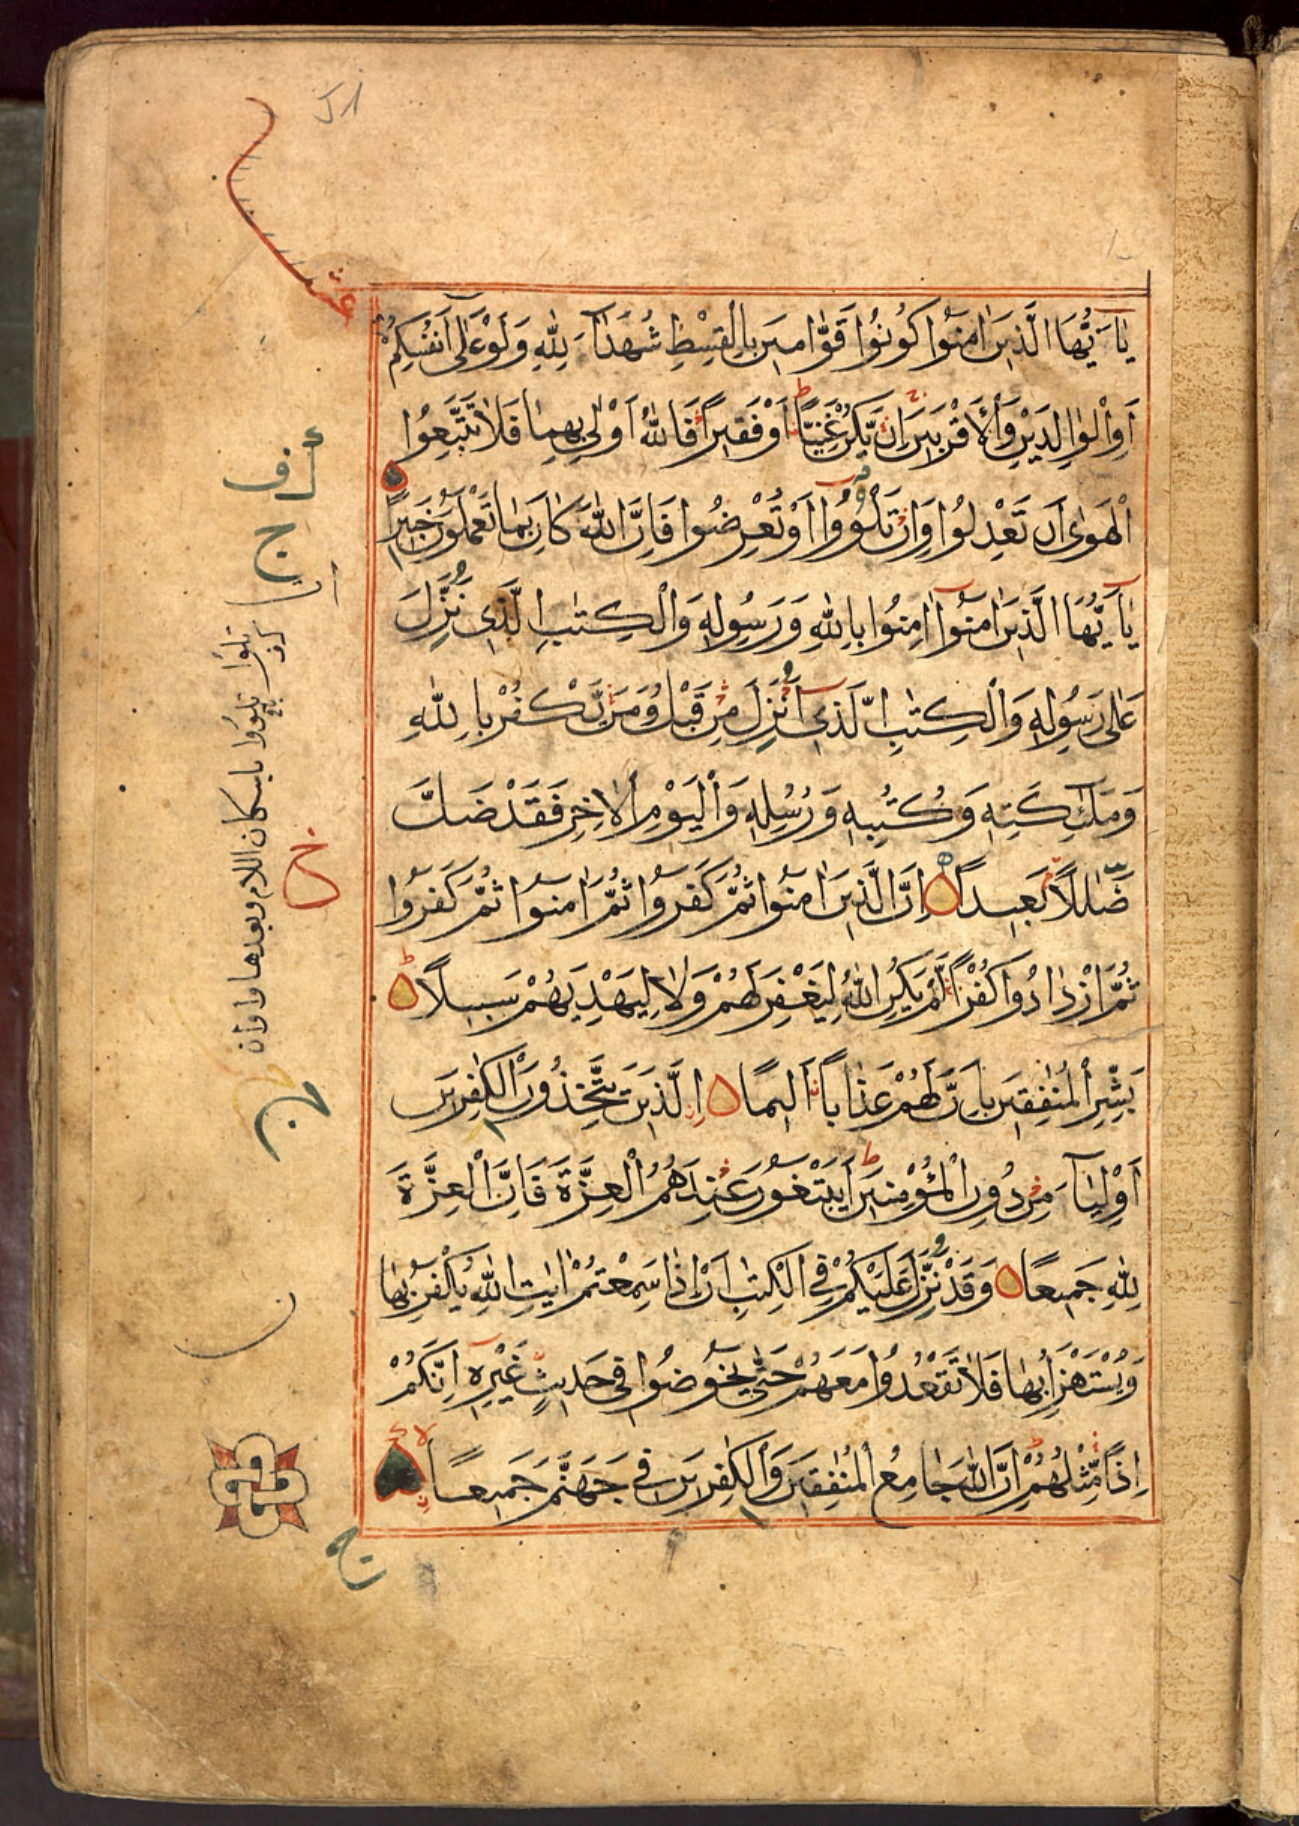 يٰاَيُّهَا الَّذِينَ اٰمَنُوا كُونُوا قَوّٰامِينَ بِالْقِسْطِ شُهَدٰآءَ لِلّٰهِ وَلَوْ عَلٰى اَنْفُسِكُمْ
اَوِ الْوٰالِدَيْنِ وَالْاَقْرَبِينَ اِنْ يَّكُنْ غَنِيًّا اَوْ فَقِيرًا فَاللّٰهُ اَوْلٰى بِهِمٰا فَلاٰ تَتَّبِعُوا
الْهَوٰى اَنْ تَعْدِلُوا وَاِنْ تَلْوُوا اَوْ تُعْرِضُوا فَاِنَّ اللّٰهَ كٰانَ بِمٰا تَعْمَلُونَ خَبِيرًا
يٰآ اَيُّهَا الَّذِينَ اٰمَنُوا اٰمِنُوا بِاللّٰهِ وَرَسُولِهِ وَالْكِتٰبِ الَّذِى نُزِّلَ
عَلٰى رَسُولِهِ وَالْكِتٰبِ الَّذِى اُنْزِلَ مِنْ قَبْلُ وَمَنْ يَّكْفُرْ بِاللّٰهِ
وَمَلٰٓئِكَتِهِ وَكُتُبِهِ وَرُسُلِهِ وَالْيَوْمِ الْاٰخِرِ فَقَدْ ضَلَّ
ضَّلٰلاً بَعِيدًا اِنَّ الَّذِينَ اٰمَنُوا ثُمَّ كَفَرُوا ثُمَّ اٰمَنُوا ثُمَّ كَفَرُوا
ثُمَّ ازْدٰادُوا كُفْرًا لَّمْ يَكُنِ اللّٰهُ لِيَغْفِرَ لَهُمْ وَلاٰ لِيَهْدِيَهُمْ سَبِيلاً
بَشِّرِ الْمُنٰفِقِينَ بِاَنَّ لَهُمْ عَذٰابًا اَلِيمًا اِلَّذِينَ يَتَّخِذُونَ الْكٰفِرِينَ
اَوْلِيٰٓاءَ مِنْ دُونِ الْمُؤْمِنِينَ اَيَبْتَغُونَ عِنْدَهُمُ الْعِزَّةَ فَاِنَّ الْعِزَّةَ
لِلّٰهِ جَمِيعًا وَقَدْ نُزِّلَ عَلَيْكُمْ فِى الْكِتٰبِ اَنْ اِذٰا سَمِعْتُمْ اٰيٰتِ اللّٰهِ يُكْفَرُ بِهٰا
وَيُسْتَهْزَاُ بِهٰا فَلاٰ تَقْعُدُوا مَعَهُمْ حَتّٰى يَخُوضُوا فِى حَدِيثٍ غَيْرِهِ اِنَّكُمْ
اِذًا مِّثْلُهُمْ اِنَّ اللّٰهَ جٰامِعُ الْمُنٰفِقِينَ وَالْكٰفِرِينَ فِى جَهَنَّمَ جَمِيعًا
عشر
تلوُا تلوُوا باسكان اللام وبعدها واوان
ج